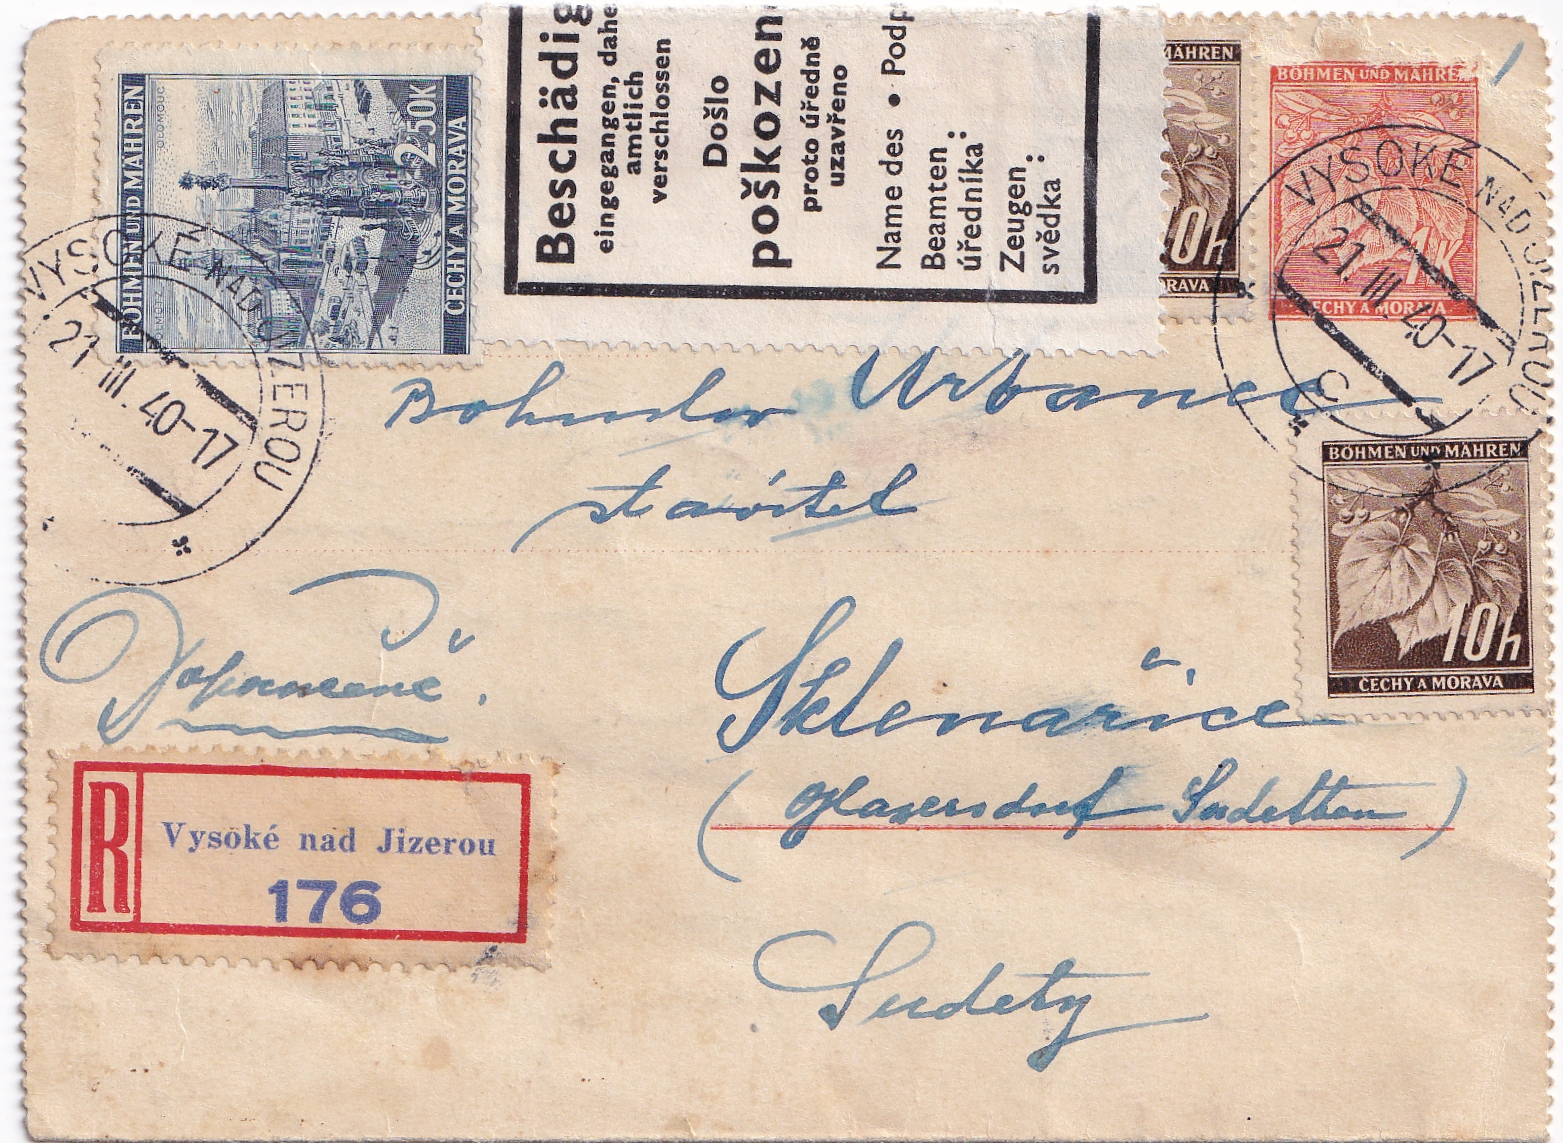 BÖHMEN UND MÄHREN
OLOMOUC
2·50K
ČECHY A MORAVA
Beschädig
eingegangen, dahe
amtlich
verschlossen
Došlo
poškozen
proto úředně
uzavřeno
Name des • Podp
Beamten
úředníka:
Zeugen
svědka:
MÄHREN
10h
MORAVA
BÖHMEN UND MÄHREN
1K
ČECHY A MORAVA
VYSOKÉ NAD JIZEROU
21. III. 40-17
VYSOKÉ NAD JIZEROU
21. III. 40-17
C
BÖHMEN UND MÄHREN
10h
ČECHY A MORAVA
Bohuslav Urbanec
stavitel
Doporučeně.
Sklenařice
(Glasersdorf Sudetten)
Sudety
R
Vysoké nad Jizerou
176